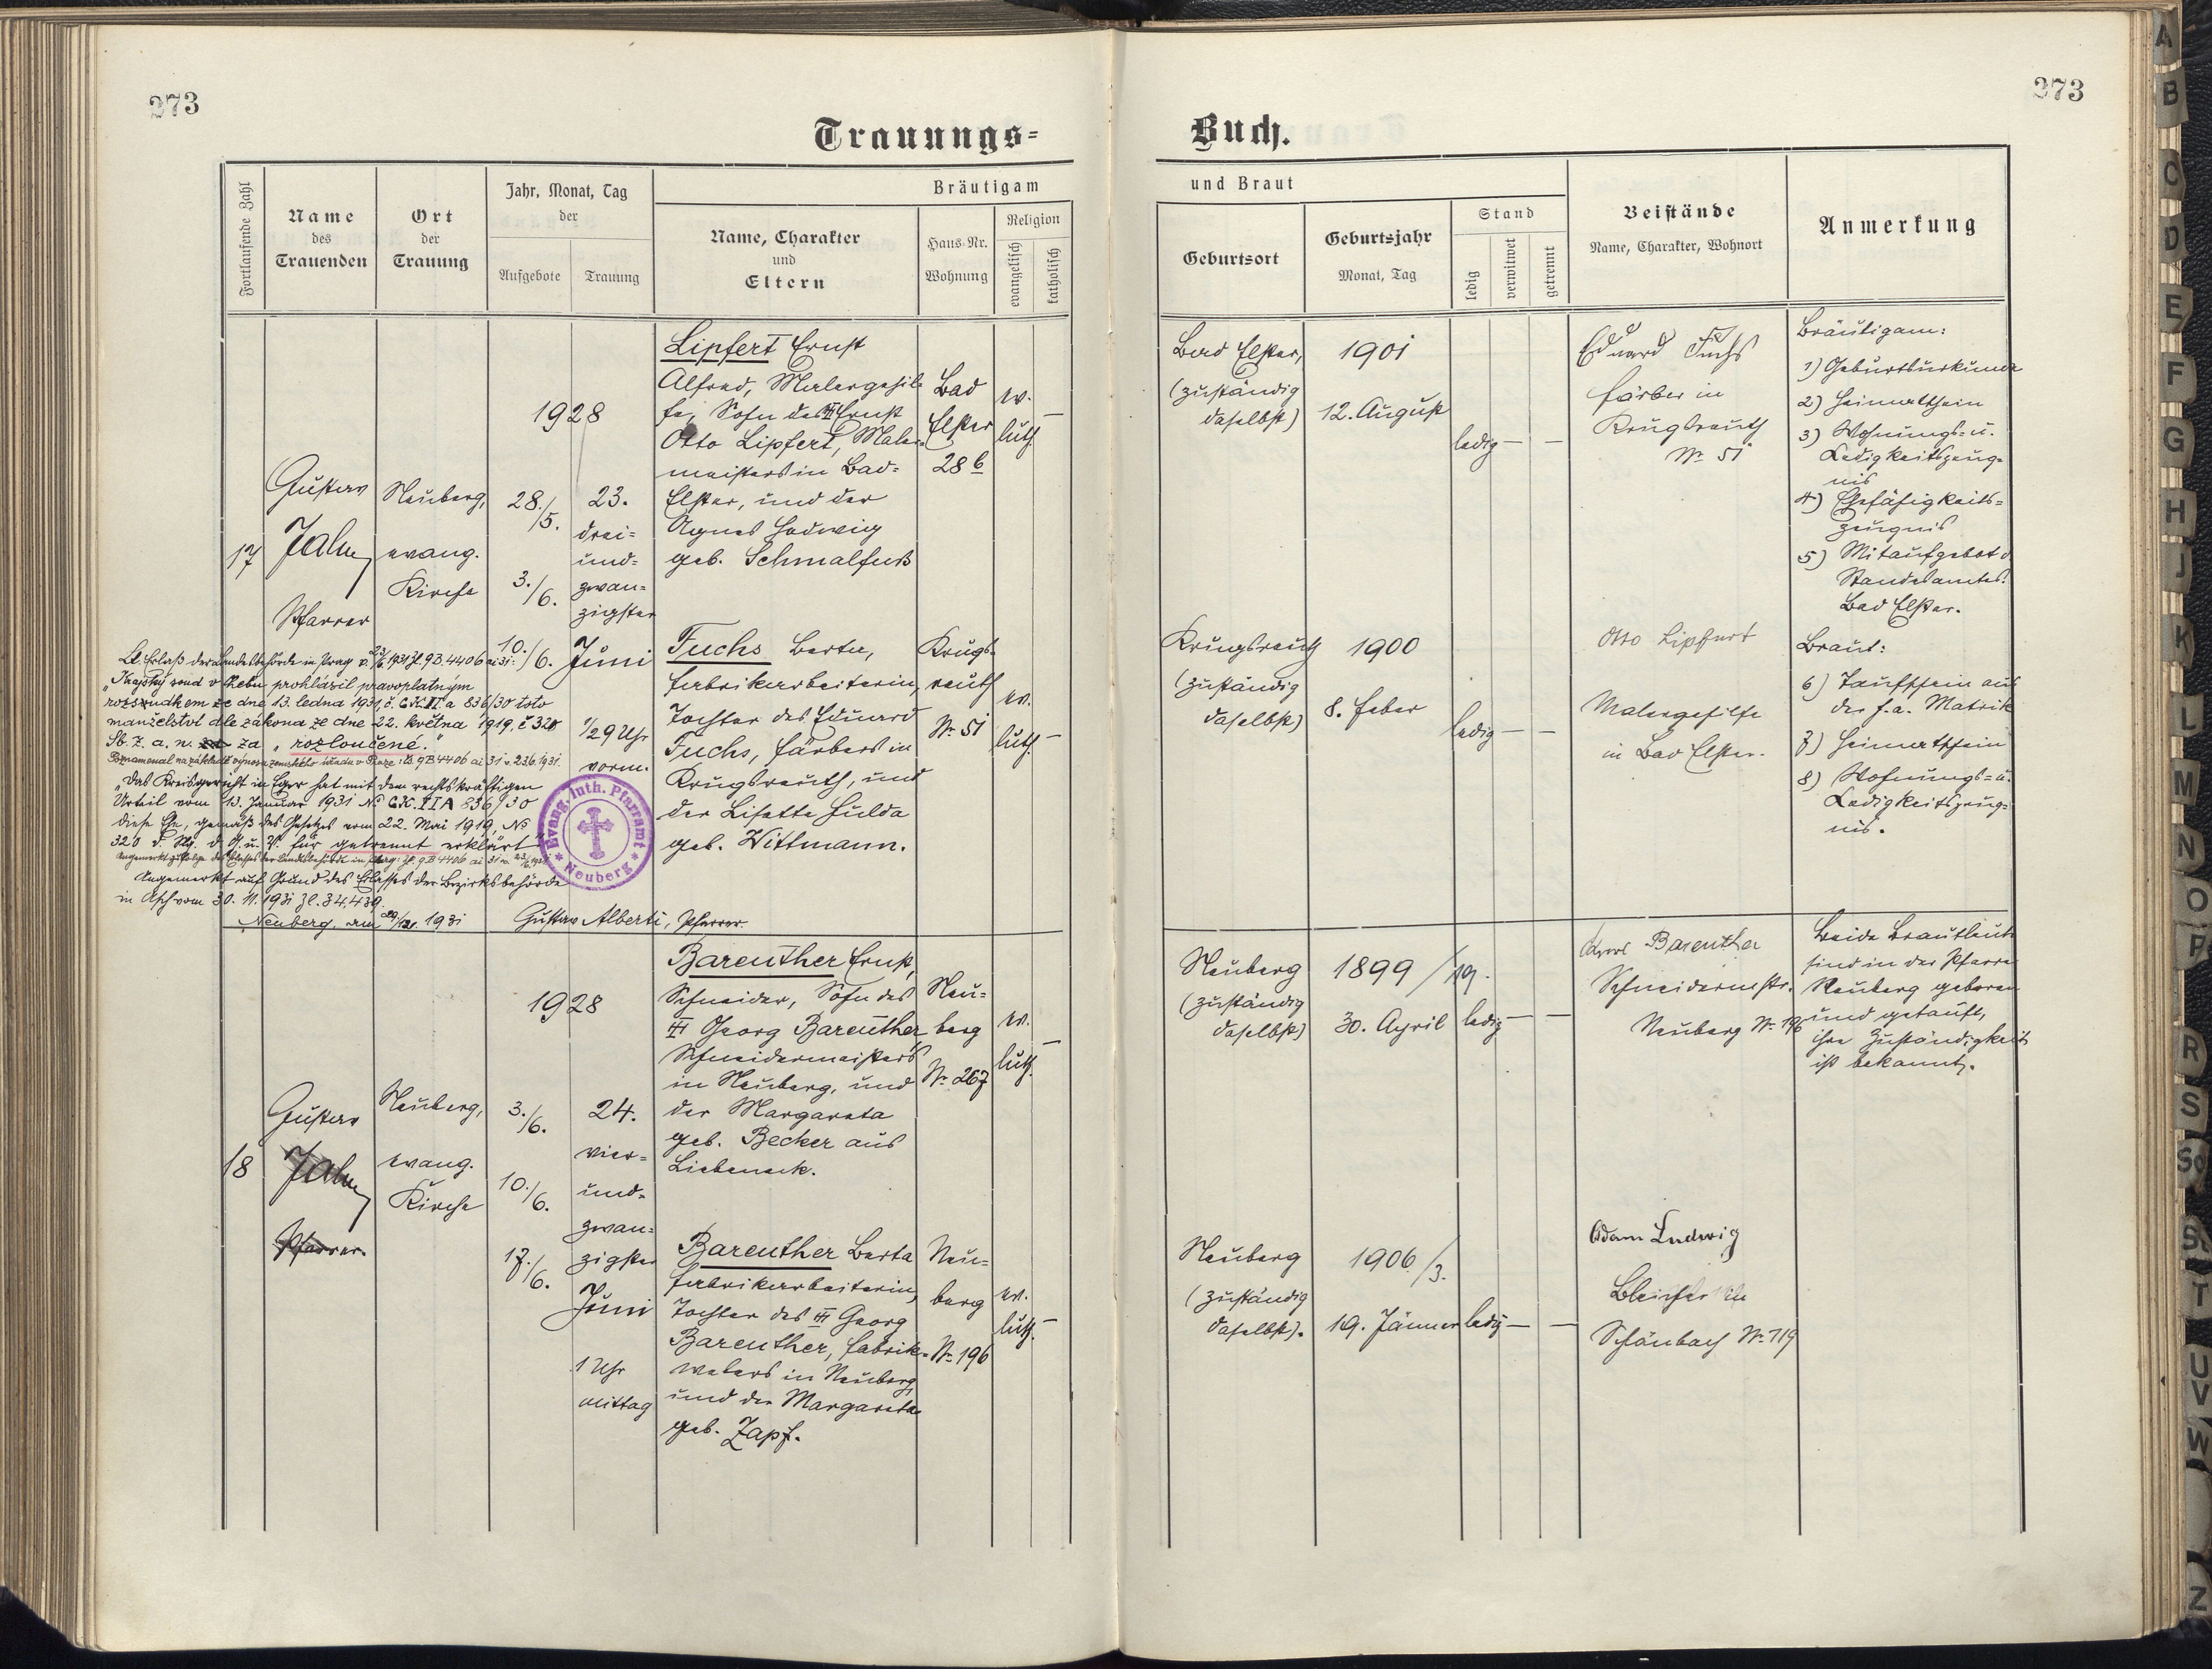 273
Trauungs-
Fortlaufende Zahl
Name
des
Trauenden
Ort
der
Trauung
Jahr, Monat, Tag
der
Aufgebote
Trauung
Bräutigam
Name, Charakter
und
Eltern
Haus-Nr.
Wohnung
Religion
evangelisch
katholisch
17
Gustav
Jahn
Pfarrer
Neuberg,
evang.
Kirche
1928
28./5.
3./6.
10./6.
23.
drei=
und=
zwan=
zigster
Juni
1/29 Uhr
vorm.
Lipfert Ernst
Alfred, Malergehil=
fe, Sohn des Ernst
Otto Lipfert, Maler=
meisters in Bad=
Elster, und der
Agnes Hedwig
geb. Schmalfuß
Bad
Elster
28 b
ev.
luth.
—
Fuchs Berta,
Fabrikarbeiterin,
Tochter des Eduard
Fuchs, Färbers in
Krugsreuth, und
der Lisette Hulda
geb. Wittmann.
Krugs=
reuth
Nr. 51
ev.
luth.
—
Lt. Erlaß der Landesbehörde in Prag v. 23/6. 1931 Zl. 9B. 4406 ai 31:
"Krajský soud v Chebu prohlásil pravoplatným
rozsudkem ze dne 13. ledna 1931, č. Ck. IIa 836/30 toto
manželství dle zákona ze dne 22. května 1919, č 320
Sb. z. a. n. za "rozloučené."
Poznamenal na základě výnosu zemského úřadu v Praze: čís. 9B 4406 ai 31 v. 23.6.1931.
"Das Kreisgericht in Eger hat mit dem rechtskräftigen
Urteil vom 13. Januar 1931 No CK. IIA 836/30
diese Ehe, gemäß des Gesetzes vom 22. Mai 1919, No
320 d. Slg. d. G. u. V. für getrennt erklärt"
Angemerkt zufolge des Erlasses der Landesbehörde in Prag: Zl. 9B 4406 ai 31 v. 23/6. 1931
Angemerkt auf Grund des Erlasses der Bezirksbehörde
in Asch vom 30. 11. 1931 Zl. 34.439.
Neuberg, am 1931 Gustav Alberti, Pfarrer.
Evang. luth. Pfarramt
Neuberg
18
Gustav
Jahn
Pfarrer.
Neuberg,
evang.
Kirche
1928
3./6.
10./6.
17./6.
24.
vier=
und=
zwan=
zigster
Juni
1 Uhr
mittag
Bareuther Ernst,
Schneider, Sohn des
Georg Bareuther,
Schneidermeisters
in Neuberg, und
der Margareta
geb. Becker aus
Liebeneck.
Neu=
berg
Nr. 267
ev.
luth.
—
Bareuther Berta
Fabrikarbeiterin,
Tochter des Georg
Bareuther, Fabrik=
webers in Neuberg,
und der Margareta
geb. Zapf.
Neu=
berg
Nr. 196
ev.
luth.
—
273
Buch.
und Braut
Geburtsort
Geburtsjahr
Monat, Tag
Stand
ledig
verwitwet
getrennt
Beistände
Name, Charakter, Wohnort
Anmerkung
Bad Elster,
(zuständig
daselbst)
1901
12. August
ledig — —
Eduard Fuchs
Färber in
Krugsreuth
Nr. 51
Bräutigam:
1) Geburtsurkunde
2) Heimatschein
3) Wohnungs= u.
Ledigkeitszeug=
nis
4) Ehefähigkeits=
zeugnis
5) Mitaufgebot d.
Standesamtes.
Bad Elster.
Krugsreuth
(zuständig
daselbst)
1900
8. Feber
ledig — —
Otto Lipfert
Malergehilfe
in Bad Elster.
Braut:
6) Taufschein aus
der h.a. Matrik
7) Heimatschein
8) Wohnungs= u.
Ledigkeitszeug=
nis.
Neuberg
(zuständig
daselbst)
1899/19.
30. April
ledig — —
Bareuther
Schneidermstr.
Neuberg Nr. 196
Beide Brautleute
sind in der Pfarre
Neuberg geboren
und getauft,
ihre Zuständigkeit
ist bekannt.
Neuberg
(zuständig
daselbst).
1906/3.
19. Jänner
ledig — —
Adam Ludwig
Bleicher
Schönbach Nr. 119
A
B
C
D
E
F
G
H
J
K
L
M
N
O
P
R
S
T
U
V
W
Z